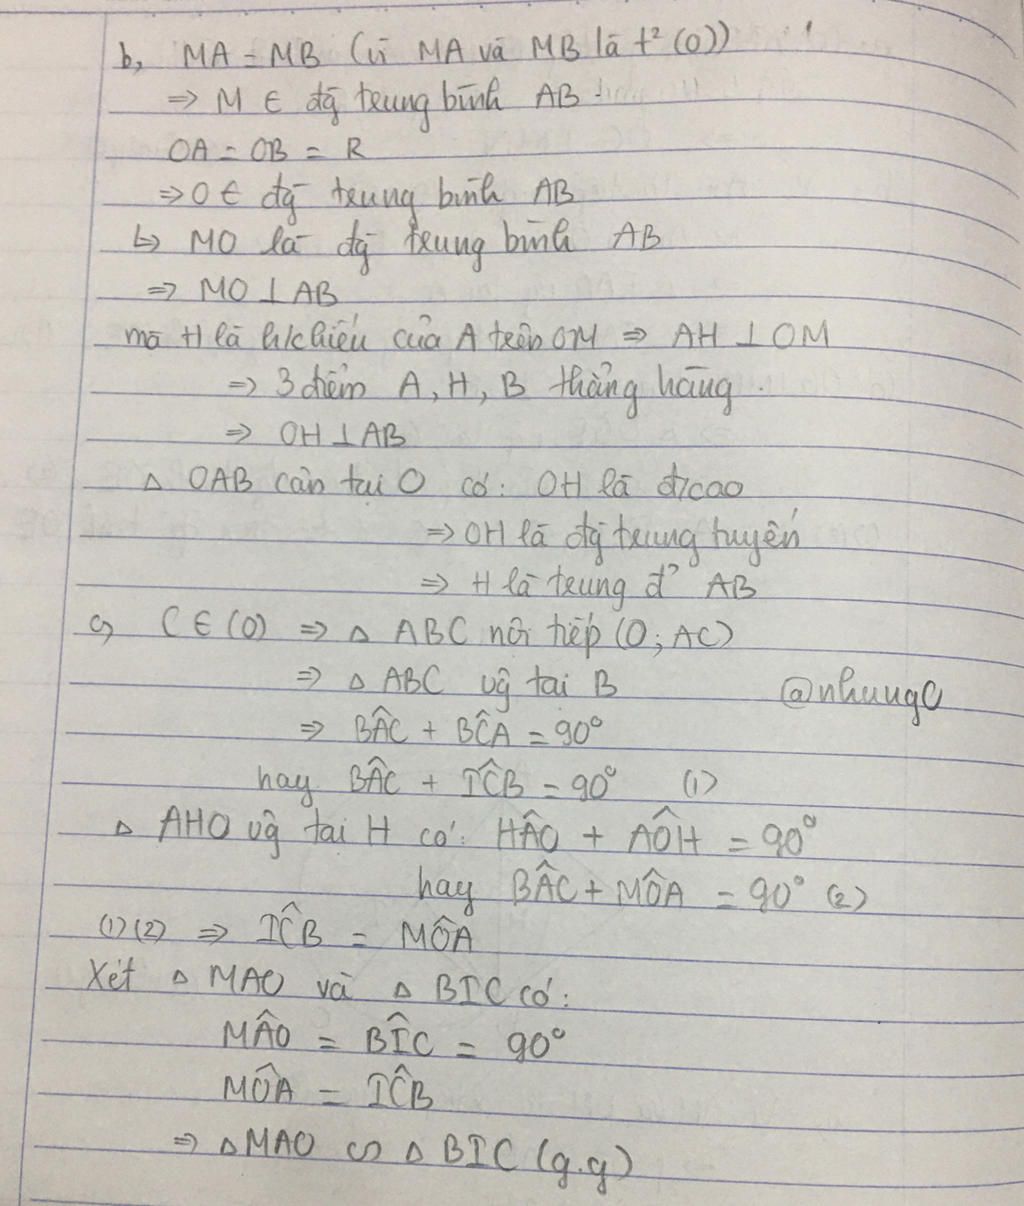 b, MA = MB (vì MA và MB là t² (O))
=> M ∈ đg trung bình AB
OA = OB = R
=> O ∈ đg trung bình AB
↳ MO là đg trung bình AB
=> MO ⊥ AB
mà H là h/chiếu của A trên OM => AH ⊥ OM
=> 3 điểm A, H, B thẳng hàng
=> OH ⊥ AB
△ OAB cân tại O có: OH là đ/cao
=> OH là đg trung tuyến
=> H là trung đ² AB
c, C ∈ (O) => △ ABC nội tiếp (O; AC)
=> △ ABC vg tại B
@nhungO
=> BÂC + BĈA = 90°
hay BÂC + IĈB = 90° (1)
△ AHO vg tại H có: HÂO + AÔH = 90°
hay BÂC + MÔA = 90° (2)
(1)(2) => IĈB = MÔA
Xét △ MAO và △ BIC có:
MÂO = BÎC = 90°
MÔA = IĈB
=> △MAO ∽ △ BIC (g.g)